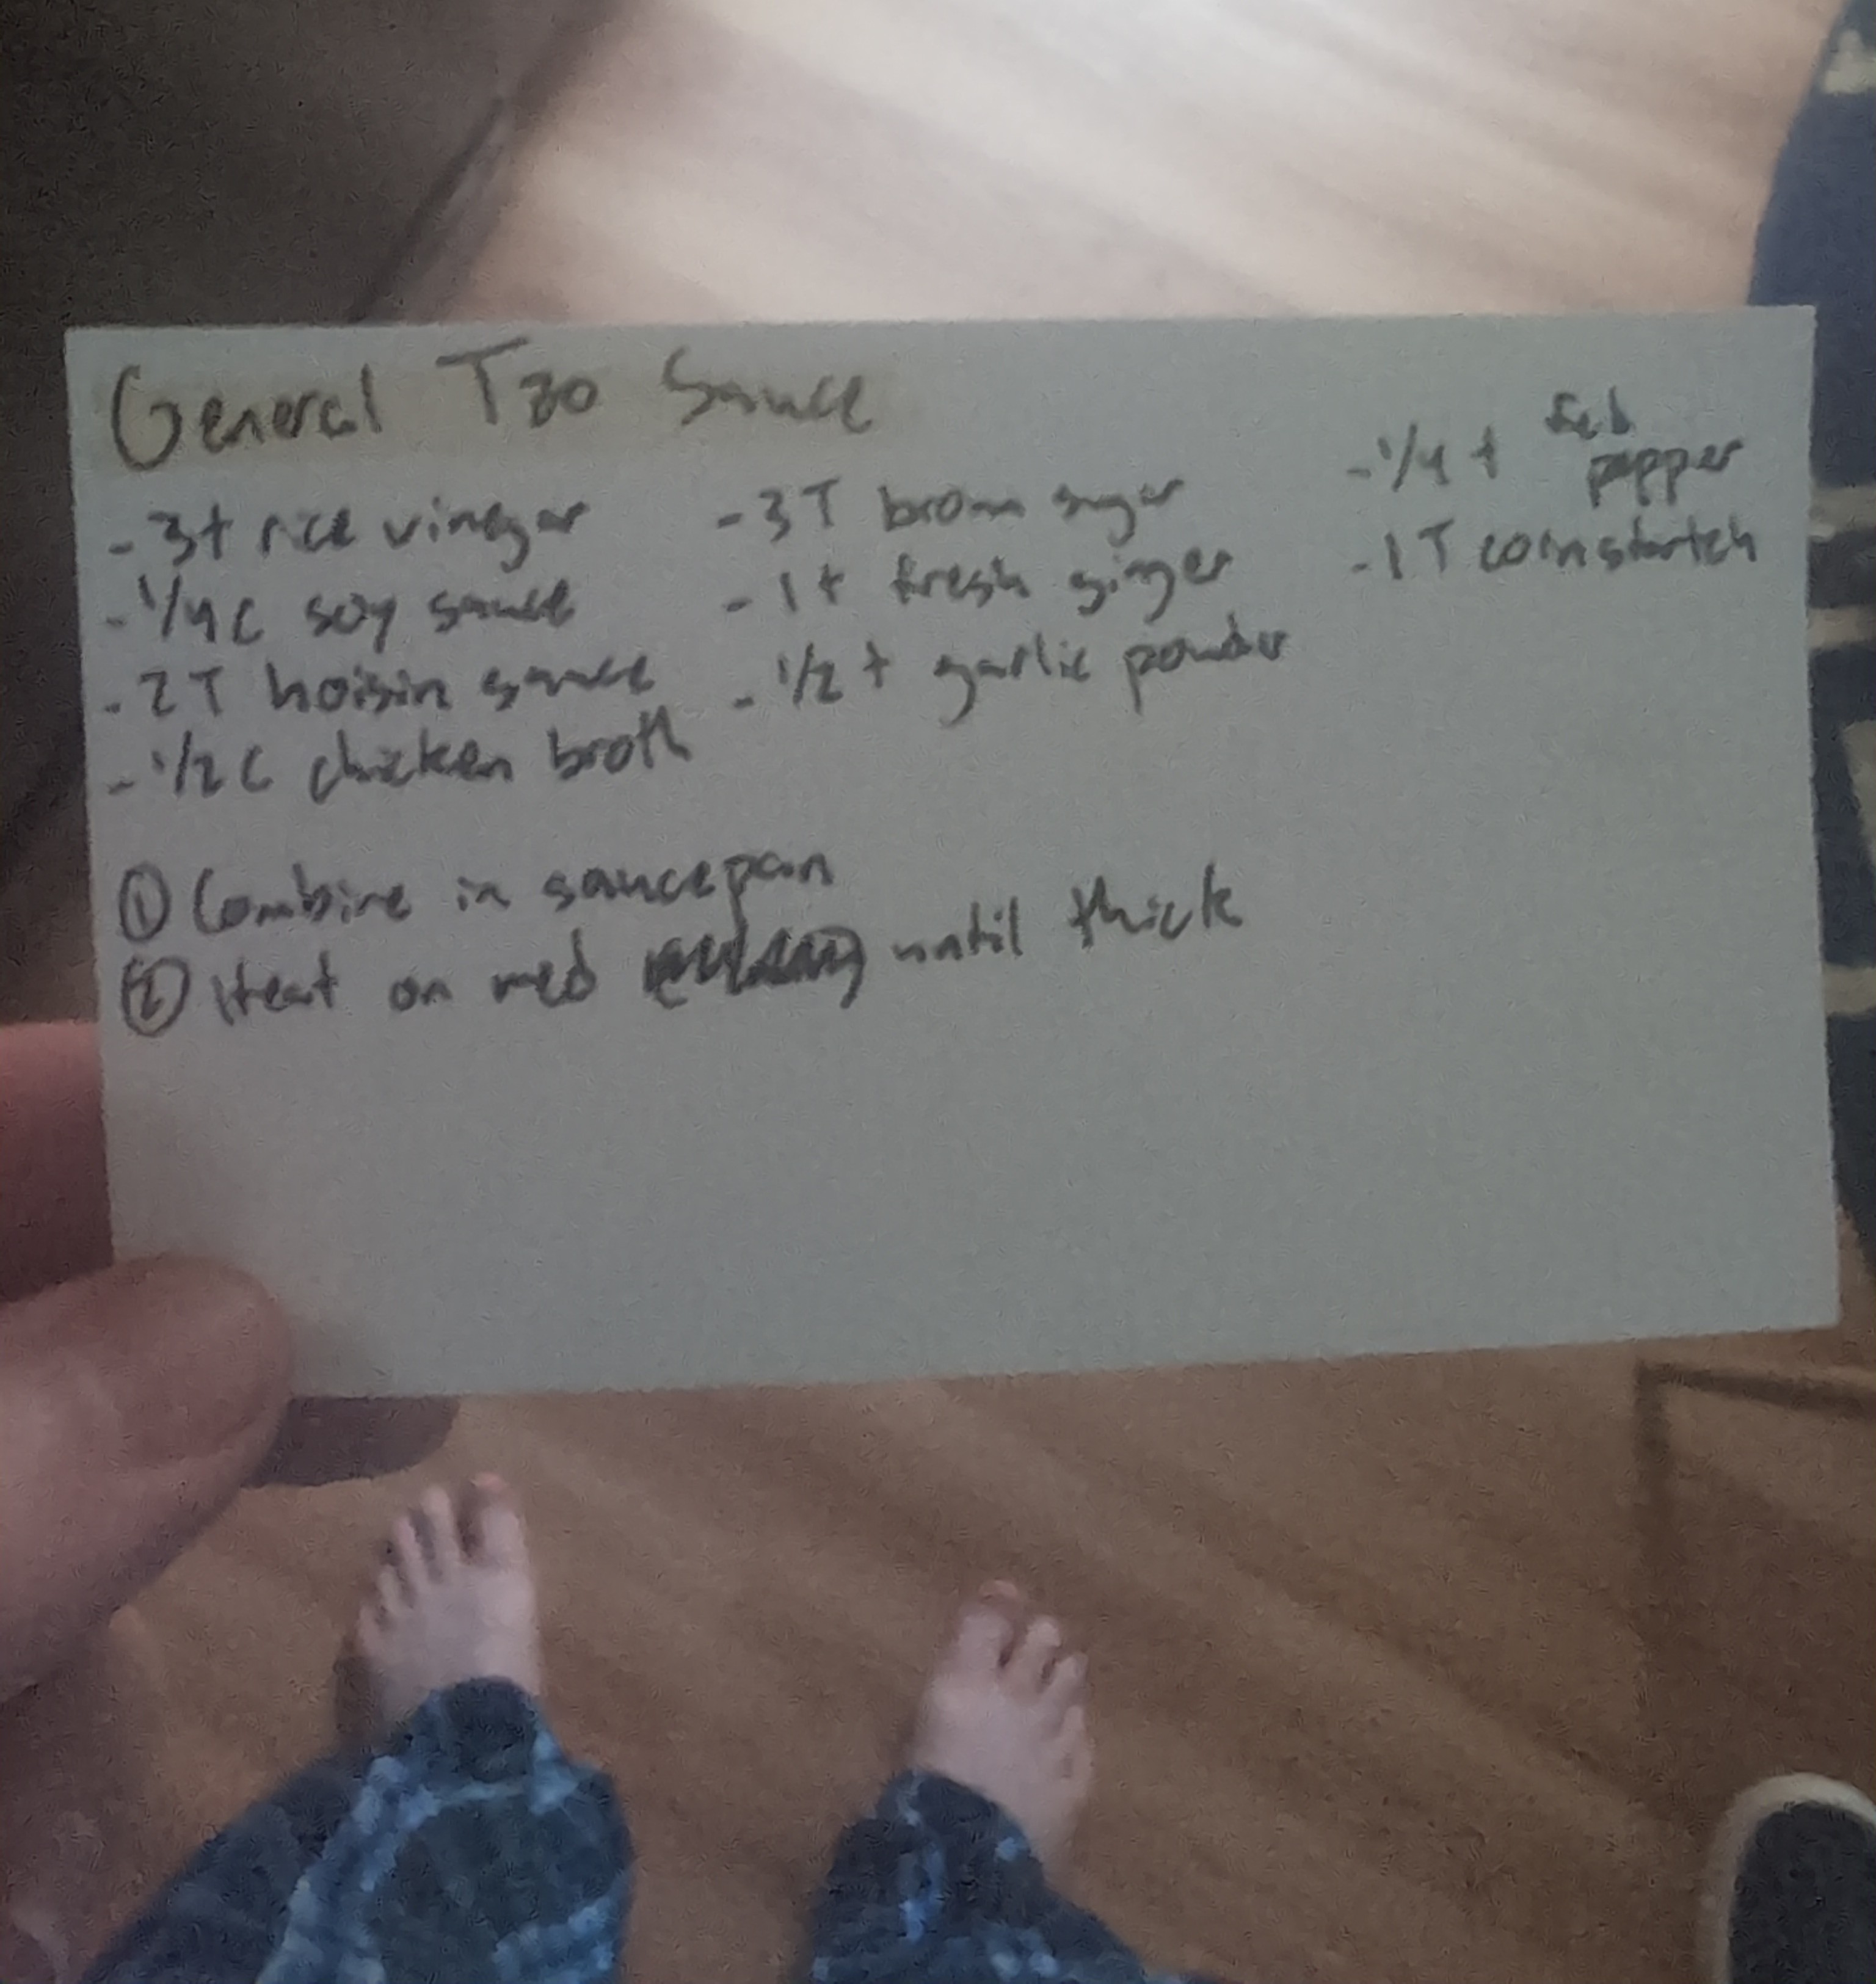 General Tzo Sauce
- 3t rice vinegar
- 1/4 c soy sauce
- 2T hoisin sauce
- 1/2 c chicken broth
- 3T brown sugar
- 1t fresh ginger
- 1/2 t garlic powder
- 1/4 t red pepper
- 1T cornstartch
① Combine in saucepan
② Heat on med until thick